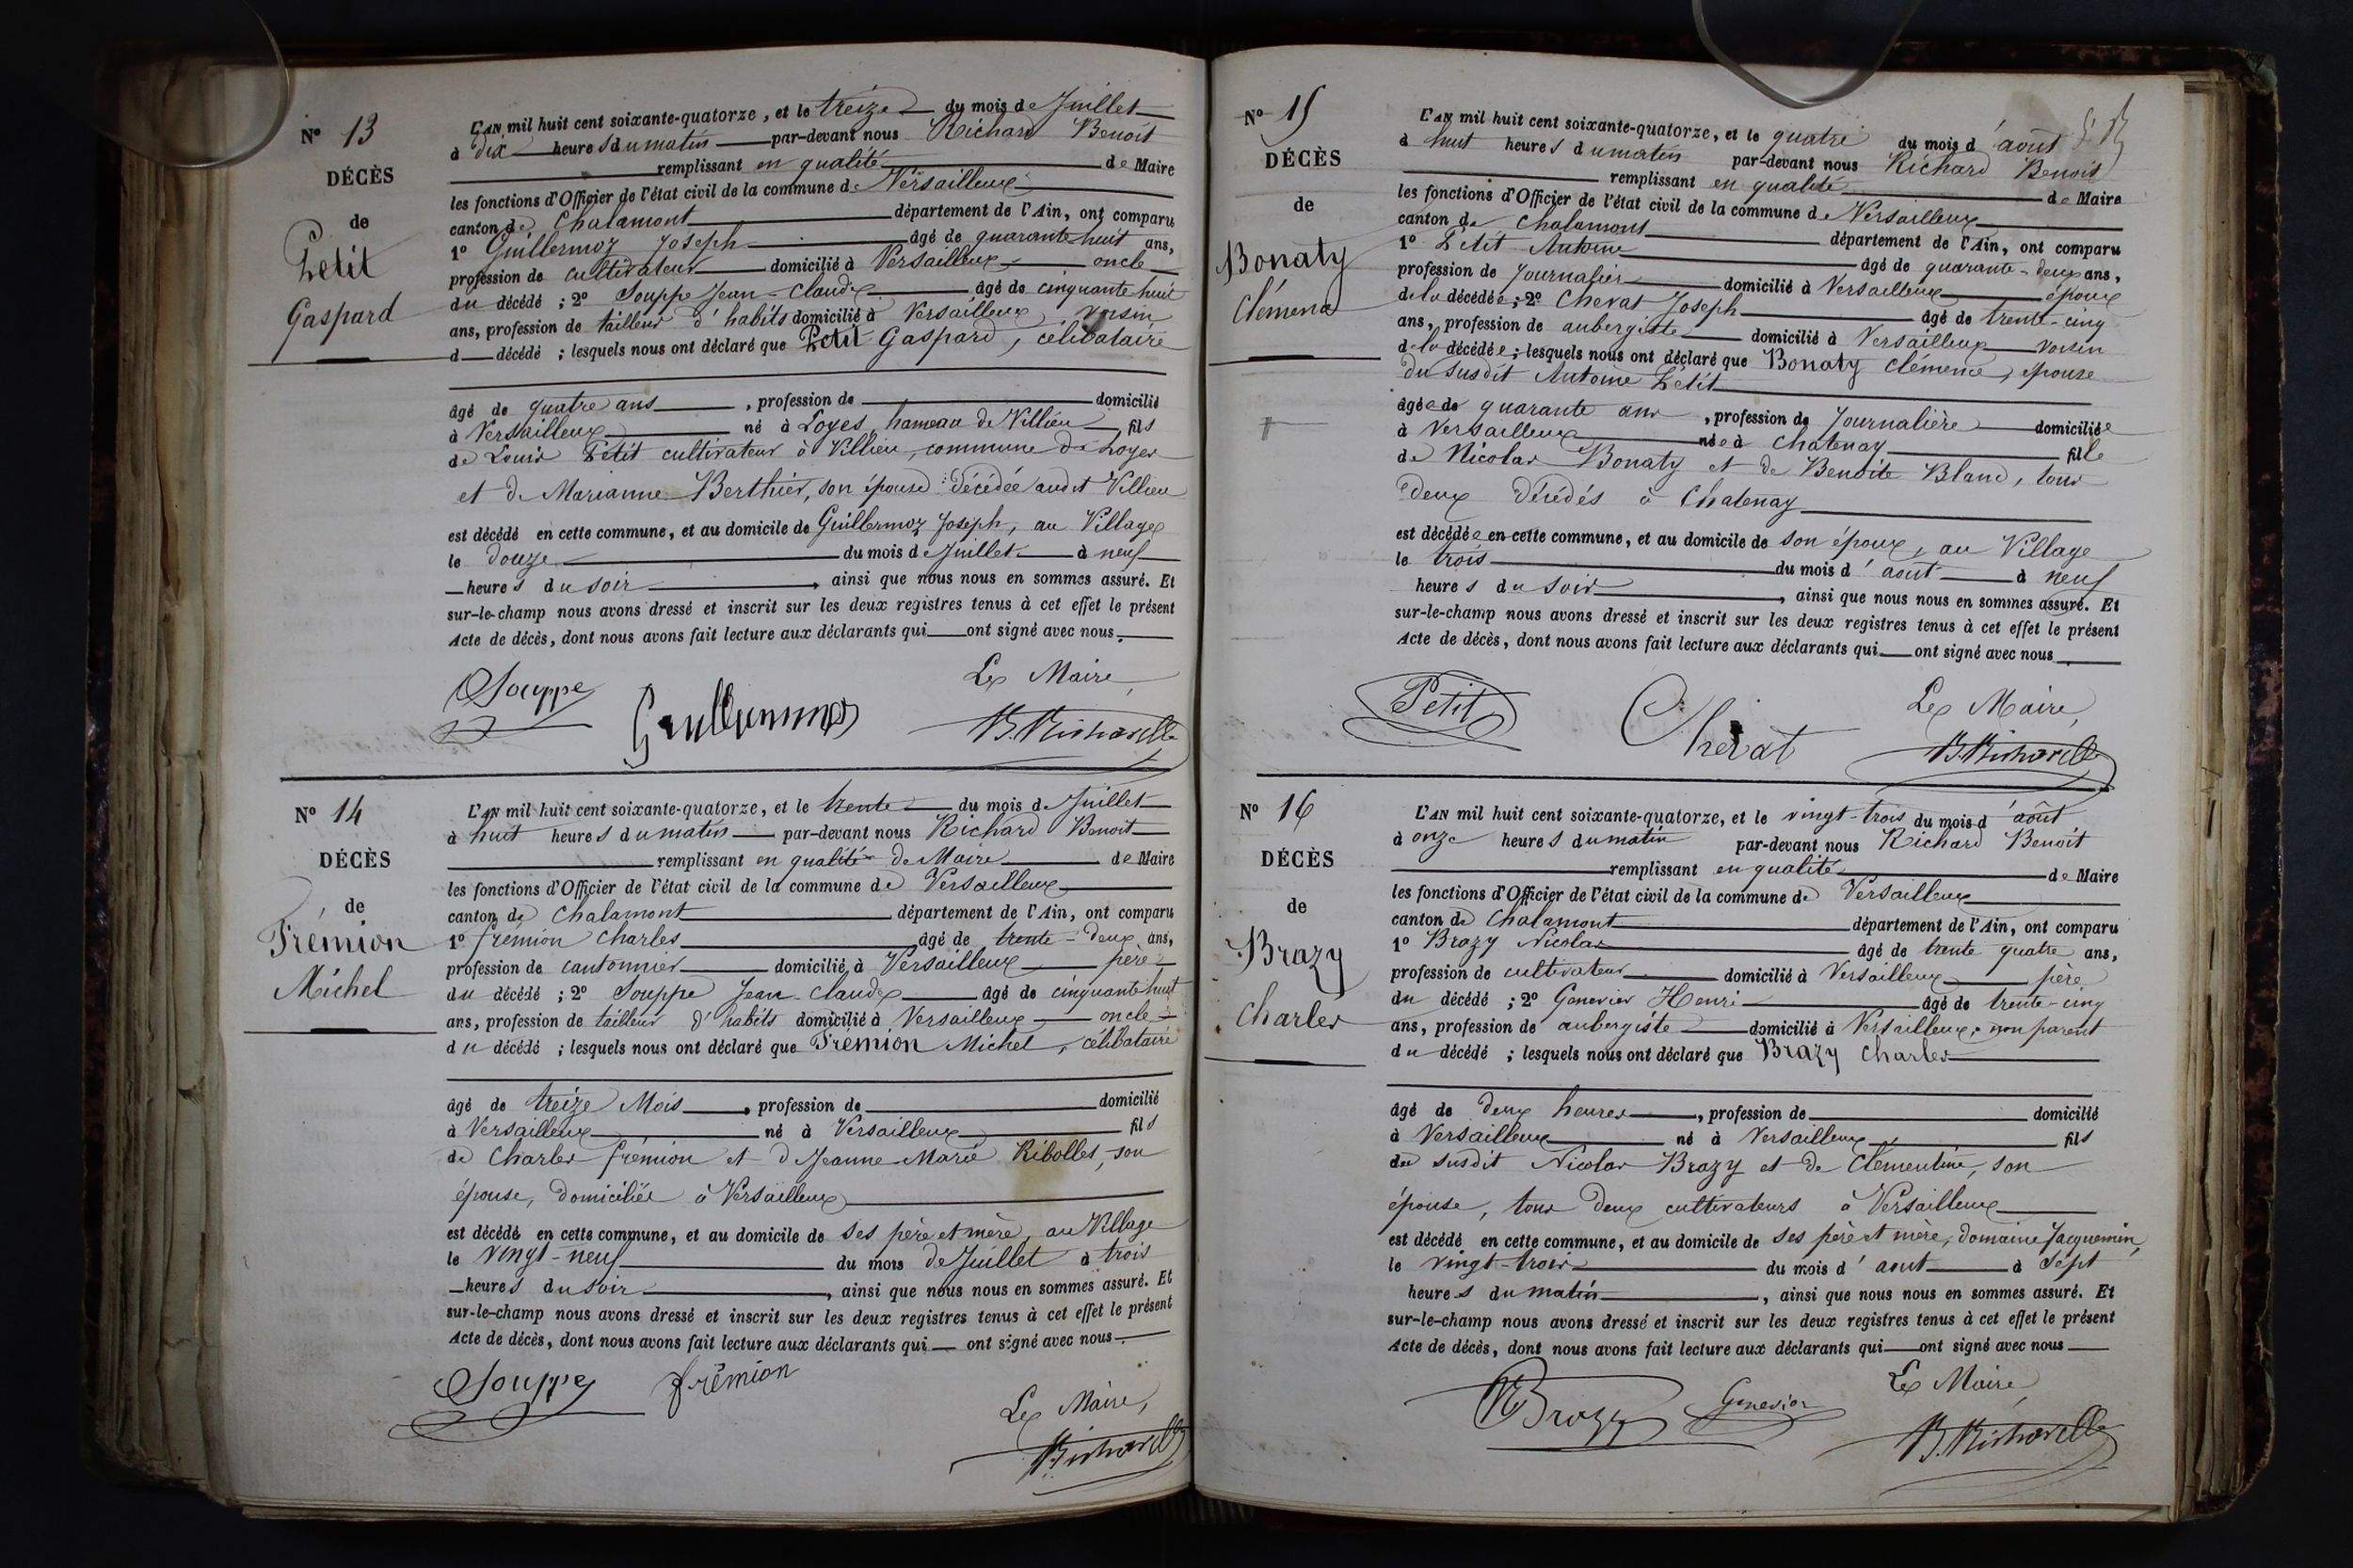 N° 13
DÉCÈS
de
Petit
Gaspard
L'AN mil huit cent soixante-quatorze, et le treize du mois de Juillet
à dix heures du matin par-devant nous Richard Benoît
remplissant en qualité de Maire
les fonctions d'Officier de l'état civil de la commune de Versailleux
canton de Chalamont département de l'Ain, ont comparu
1° Guillermoz Joseph âgé de quarante huit ans,
profession de cultivateur domicilié à Versailleux oncle
du décédé ; 2° Souppe Jean-Claude âgé de cinquante huit
ans, profession de tailleur d'habits domicilié à Versailleux, voisin
d décédé ; lesquels nous ont déclaré que Petit Gaspard, célibataire
âgé de quatre ans, profession de domicilié
à Versailleux né à Loyes, hameau de Villieu fils
de Louis Petit cultivateur à Villieu, commune de Loyes
et de Marianne Berthier, son épouse décédée audit Villieu
est décédé en cette commune, et au domicile de Guillermoz Joseph, au Village
le douze du mois de Juillet à neuf
heures du soir, ainsi que nous nous en sommes assuré. Et
sur-le-champ nous avons dressé et inscrit sur les deux registres tenus à cet effet le présent
Acte de décès, dont nous avons fait lecture aux déclarants qui ont signé avec nous.
Le Maire,
Souppe Guillermoz B. Richard
N° 14
DÉCÈS
de
Frémion
Michel
L'AN mil huit cent soixante-quatorze, et le trente du mois de Juillet
à huit heures du matin par-devant nous Richard Benoit
remplissant en qualité de Maire de Maire
les fonctions d'Officier de l'état civil de la commune de Versailleux
canton de Chalamont département de l'Ain, ont comparu
1° frémion Charles âgé de trente-deux ans,
profession de cantonnier domicilié à Versailleux père
du décédé ; 2° Souppe Jean-Claude âgé de cinquante huit
ans, profession de tailleur d'habits domicilié à Versailleux oncle
du décédé ; lesquels nous ont déclaré que Frémion Michel, célibataire
âgé de treize Mois, profession de domicilié
à Versailleux né à Versailleux fils
de Charles frémion et de Jeanne-Marie Ribolles, son
épouse, domiciliés à Versailleux
est décédé en cette commune, et au domicile de ses père et mère, au Village
le vingt-neuf du mois de Juillet à trois
heures du soir, ainsi que nous nous en sommes assuré. Et
sur-le-champ nous avons dressé et inscrit sur les deux registres tenus à cet effet le présent
Acte de décès, dont nous avons fait lecture aux déclarants qui ont signé avec nous.
Souppe frémion
Le Maire,
B. Richard
N° 15
DÉCÈS
de
Bonaty
Clémence
L'AN mil huit cent soixante-quatorze, et le quatre du mois d'août
à huit heures du matin par-devant nous Richard Benoit
remplissant en qualité de Maire
les fonctions d'Officier de l'état civil de la commune de Versailleux
canton de Chalamont département de l'Ain, ont comparu
1° Petit Antoine âgé de quarante-deux ans,
profession de Journalier domicilié à Versailleux époux
de la décédée ; 2° Chevat Joseph âgé de trente-cinq
ans, profession de aubergiste domicilié à Versailleux voisin
de la décédée ; lesquels nous ont déclaré que Bonaty Clémence, épouse
du susdit Antoine Petit
âgée de quarante ans, profession de Journalière domiciliée
à Versailleux née à Chatenay fille
de Nicolas Bonaty et de Benoite Bland, tous
deux décédés à Chatenay
est décédée en cette commune, et au domicile de son époux, au Village
le trois du mois d'août à neuf
heures du soir, ainsi que nous nous en sommes assuré. Et
sur-le-champ nous avons dressé et inscrit sur les deux registres tenus à cet effet le présent
Acte de décès, dont nous avons fait lecture aux déclarants qui ont signé avec nous
Le Maire,
Petit Chevat B. Richard
N° 16
DÉCÈS
de
Brazy
Charles
L'AN mil huit cent soixante-quatorze, et le vingt-trois du mois d'août
à onze heures du matin par-devant nous Richard Benoît
remplissant en qualité de Maire
les fonctions d'Officier de l'état civil de la commune de Versailleux
canton de Chalamont département de l'Ain, ont comparu
1° Brazy Nicolas âgé de trente quatre ans,
profession de cultivateur domicilié à Versailleux père
du décédé ; 2° Genevier Henri âgé de trente-cinq
ans, profession de aubergiste domicilié à Versailleux, non parent
du décédé ; lesquels nous ont déclaré que Brazy Charles
âgé de deux heures, profession de domicilié
à Versailleux né à Versailleux fils
du susdit Nicolas Brazy et de Clémentine, son
épouse, tous deux cultivateurs à Versailleux
est décédé en cette commune, et au domicile de ses père et mère, domaine Jacquemin,
le vingt-trois du mois d'août à sept
heures du matin, ainsi que nous nous en sommes assuré. Et
sur-le-champ nous avons dressé et inscrit sur les deux registres tenus à cet effet le présent
Acte de décès, dont nous avons fait lecture aux déclarants qui ont signé avec nous
Le Maire,
N Brazy Genevier B. Richard